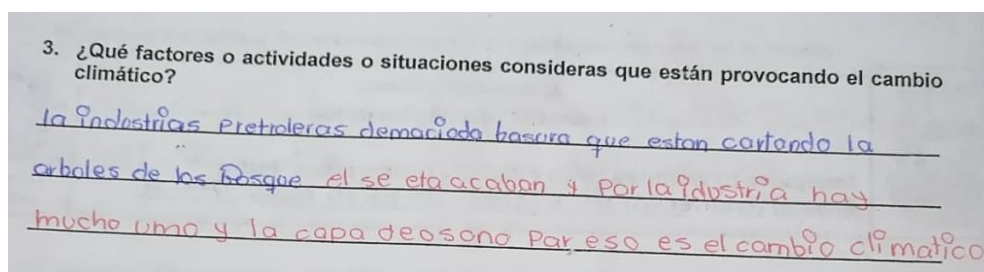 3. ¿Qué factores o actividades o situaciones consideras que están provocando el cambio
climático?
la indostrias pretroleras demaciada basura que estan cortando la
arboles de los Bosque el se eta acaban y por la idustria hay
mucho umo y la capa deosono par eso es el cambio climatico